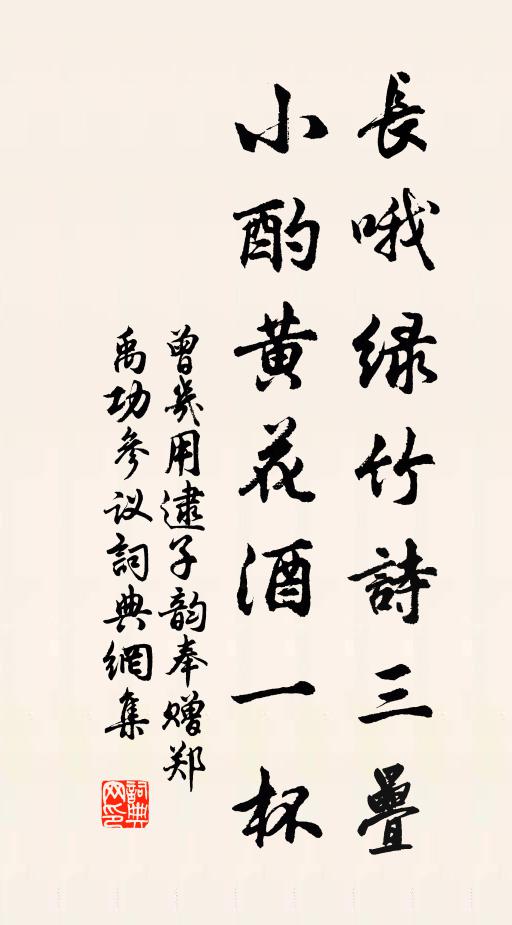 長哦緑竹詩三疊
小酌黄花酒一杯
曾幾用逮子韵奉赠郑
禹功參议詞典網集
詞典网印